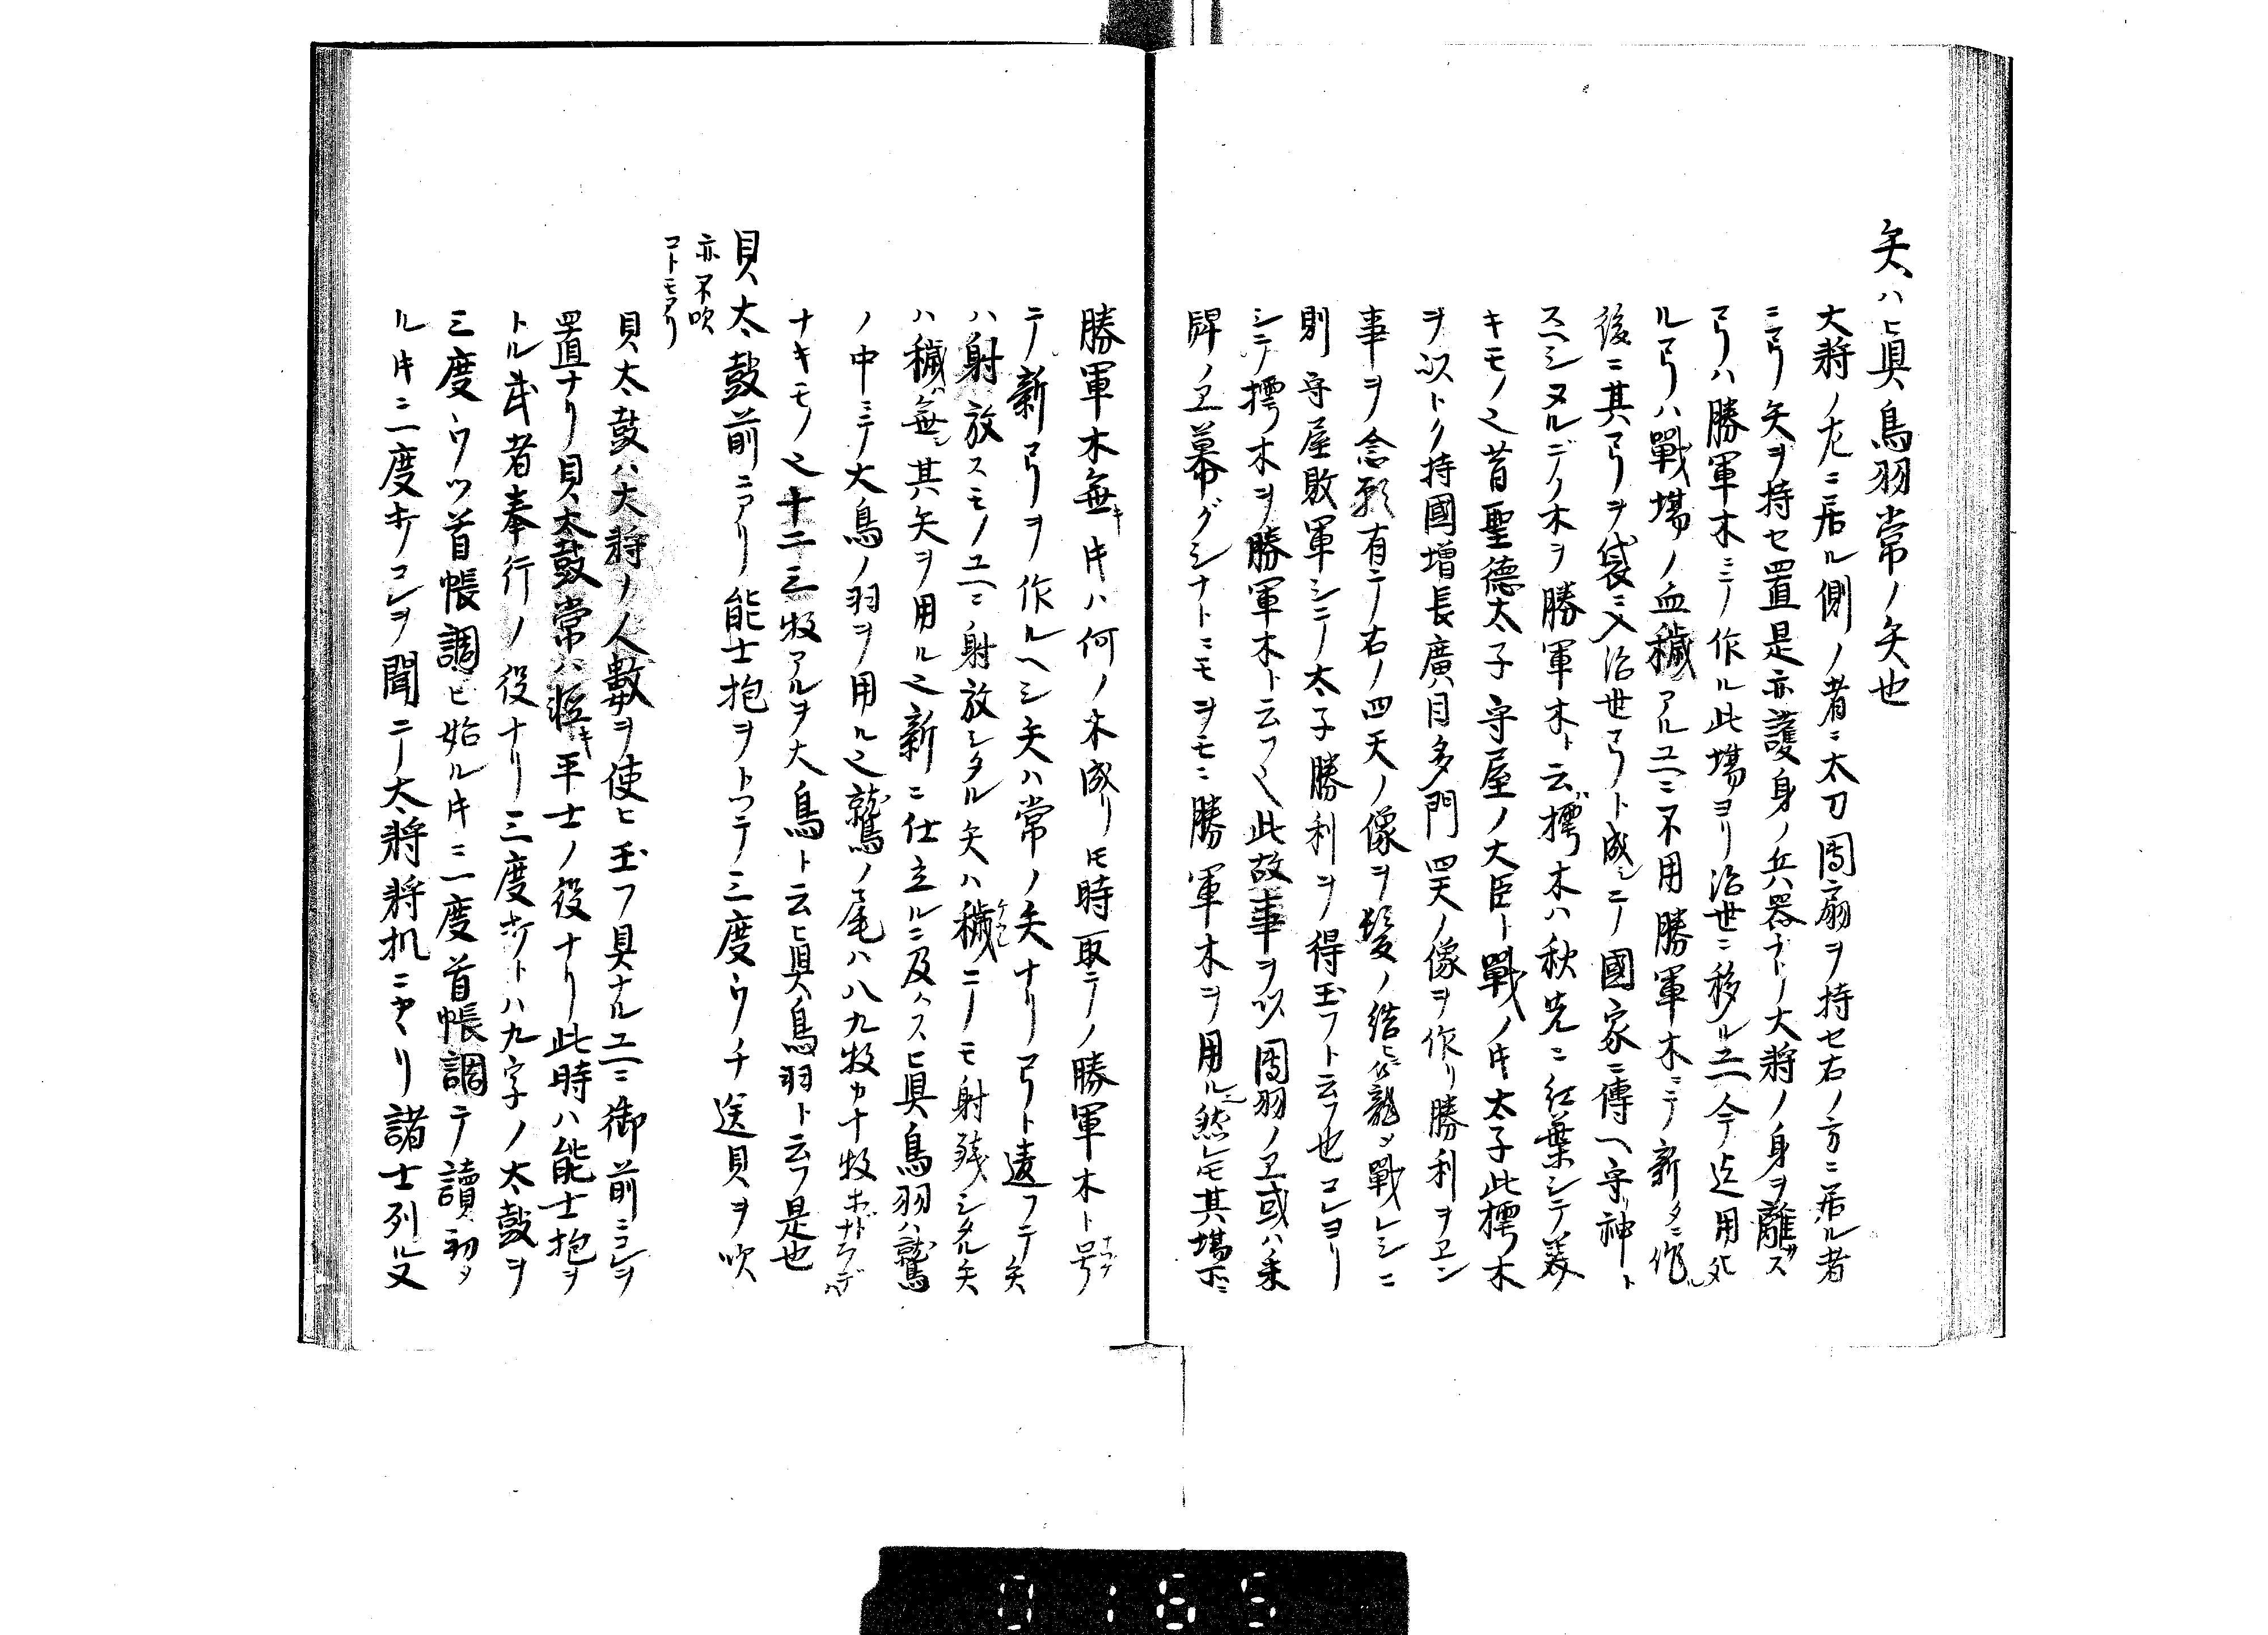 矢ハヒ眞鳥羽常ノ矢也
大将ノ左ニ居ル側ノ者ニ太刀團扇ヲ持セ右ノ方ニ居ル者
ニ弓矢ヲ持セ置是亦護身ノ兵器ナトノ大将ノ身ヲ離サス
弓ハ勝軍木ニテ作ル此場ヨリ治世ニ移ルユヘ今迄用タル
ル弓ハ戰場ノ血穢アルユヘニ不用勝軍木ニテ新タニ作ル
後ニ其弓ヲ袋ニ入治世弓ト成シテ國家ニ傳ヘ守リ神ト
スヘシヌルデノ木ヲ勝軍木ト云樗木ハ秋先ニ紅葉シテ美
キモノ也昔聖德太子守屋ノ大臣ト戰ノ时太子此樗木
ヲ以トク持國增長廣目多門四天ノ像ヲ作リ勝利ヲヱン
事ヲ念願有テ右ノ四天ノ像ヲ髪ノ結ヒニ籠メ戰レシニ
則守屋敗軍シテ太子勝利ヲ得玉フト云フ也コレヨリ
シテ樗木ヲ勝軍木ト云フ也此故事ヲ以團羽ノヱ或ハ釆
牌ノヱ幕グシナトニモヲモニ勝軍木ヲ用ル然レモ其場所ニ
勝軍木無キ时ハ何ノ木成リ圧時取テ勝軍木ト号
テ新弓ヲ作ルヘシ矢ハ常ノ矢ナリ弓ト違フテ矢
ハ射放スモノユヘニ射放シタル矢ハ穢テモ射殘シタル矢
ハ穢無シ其矢ヲ用ル也新ニ仕立ルニ及ハスヒ眞鳥羽ハ鷲
ノ中ニテ大鳥ノ羽ヲ用ル也鷲ノ尾ハ八九枚カ十枚ホドナラデハ
ナキモノ也十二三枚アルヲ大鳥ト云ヒ眞鳥羽ト云フ是也
貝太鼓前ニアリ能士抱ヲトツテ三度ウチ送貝ヲ吹
亦不吹
コトモアリ
貝太鼓ハ大将ノ人數ヲ使ヒ玉フ具ナルユヘニ御前ニコレヲ
置ナリ貝太鼓常ハ 平士ノ役ナリ此時ハ能士抱ヲ
トル武者奉行ノ役ナリ三度 トハ九字ノ太鼓ヲ
三度ウツ首帳調ヒ始ル时ニ一度首帳調テ讀初メ
ル时ニ二度 コレヲ聞テ大将将机ニ リ諸士列ル又